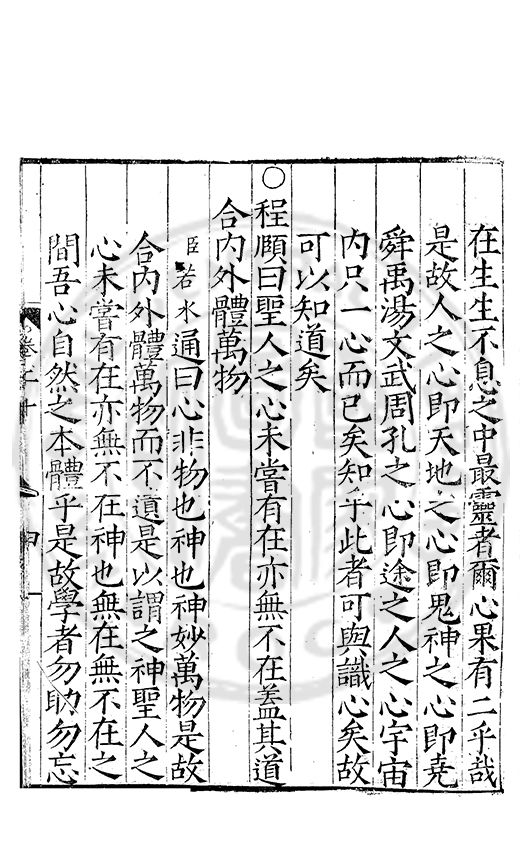 在生生不息之中最靈者爾心果有二乎哉
是故人之心即天地之心即鬼神之心即堯
舜禹湯文武周孔之心即途之人之心宇宙
内只一心而已矣知乎此者可與識心矣故
可以知道矣
○程頤曰聖人之心未嘗有在亦無不在蓋其道
合内外體萬物
臣若水通曰心非物也神也神妙萬物是故
合内外體萬物而不遺是以謂之神聖人之
心未嘗有在亦無不在神也無在無不在之
間吾心自然之本體乎是故學者勿助勿忘